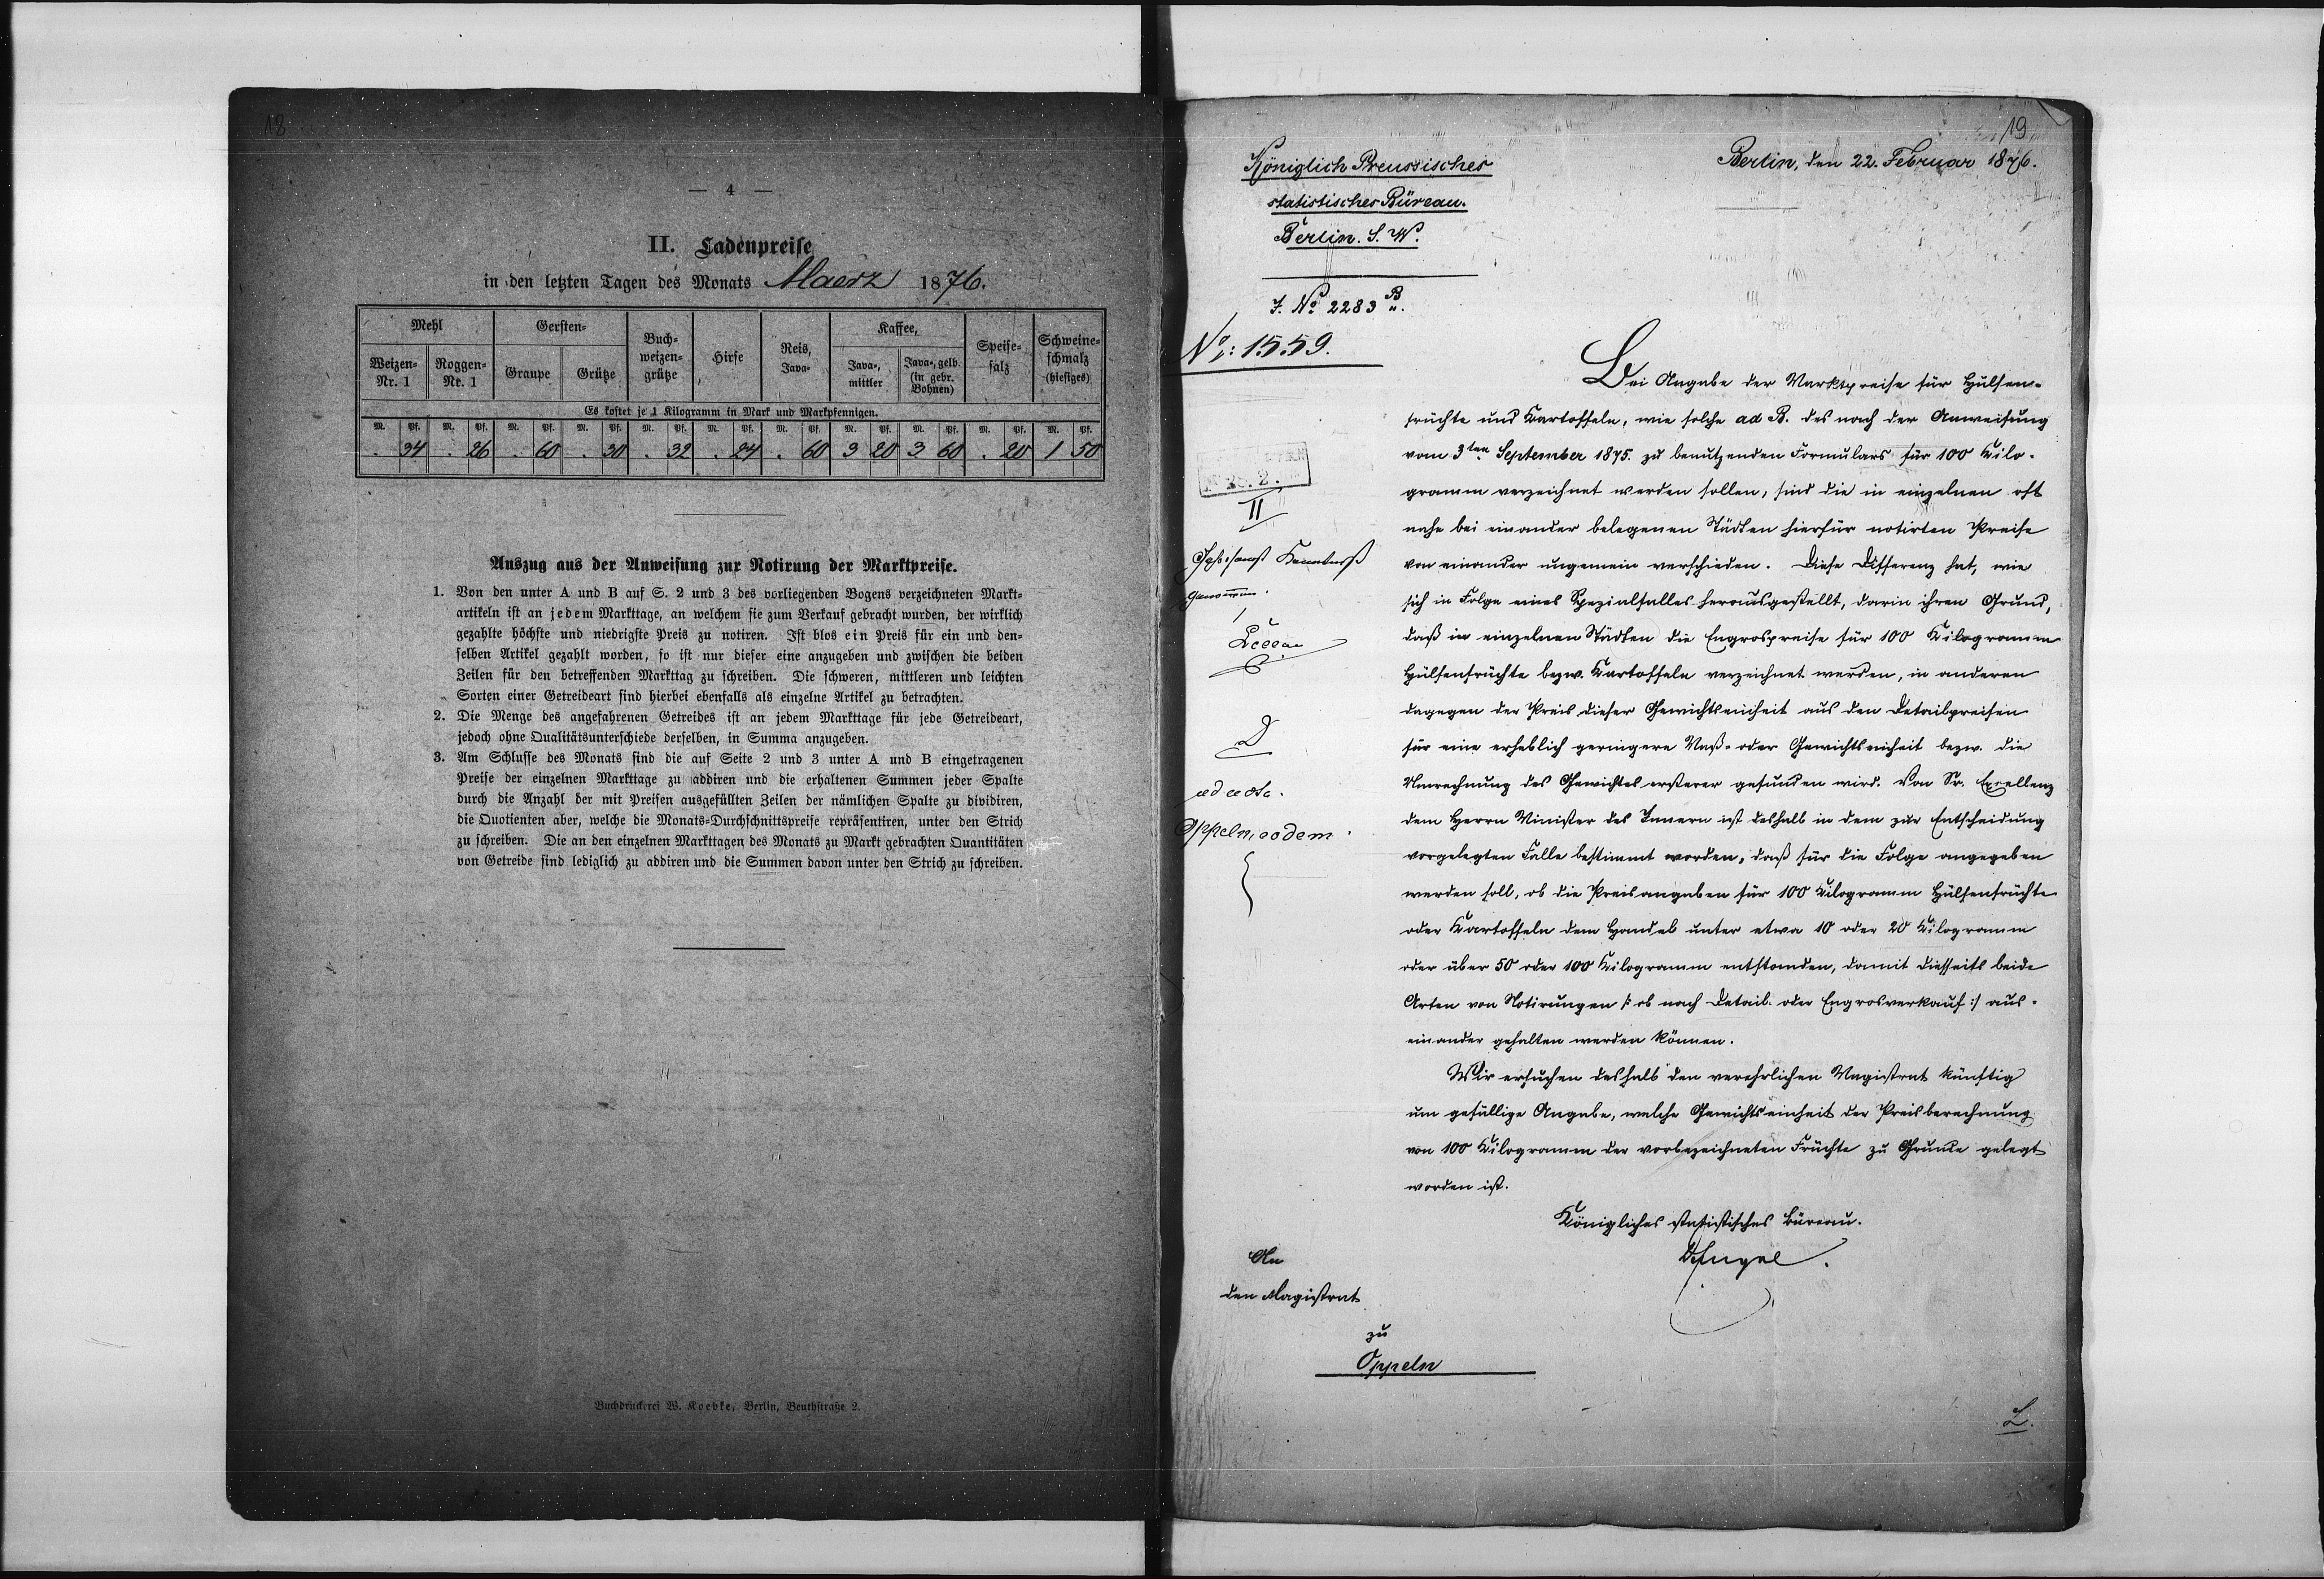 18
— 4 —
II. Ladenpreise
in den letzten Tagen des Monats Maerz 1876.
Mehl Gersten- Buchweizengrütze Hirse Reis, Java- Kaffee, Speisesalz Schweineschmalz (hiesiges)
Weizen- Nr. 1 Roggen- Nr. 1 Graupe Grütze Java-, mittler Java-, gelb (in gebr. Bohnen)
Es kostet je 1 Kilogramm in Mark und Markpfennigen.
M. Pf. M. Pf. M. Pf. M. Pf. M. Pf. M. Pf. M. Pf. M. Pf. M. Pf. M. Pf. M. Pf.
. 34 . 26 . 60 . 30 . 32 . 24 . 60 3 20 3 60 . 20 1 50
Auszug aus der Anweisung zur Notirung der Marktpreise.
1. Von den unter A und B auf S. 2 und 3 des vorliegenden Bogens verzeichneten Markt-
artikeln ist an jedem Markttage, an welchem sie zum Verkauf gebracht wurden, der wirklich
gezahlte höchste und niedrigste Preis zu notiren. Ist blos ein Preis für ein und den-
selben Artikel gezahlt worden, so ist nur dieser eine anzugeben und zwischen die beiden
Zeilen für den betreffenden Markttag zu schreiben. Die schweren, mittleren und leichten
Sorten einer Getreideart sind hierbei ebenfalls als einzelne Artikel zu betrachten.
2. Die Menge des angefahrenen Getreides ist an jedem Markttage für jede Getreideart,
jedoch ohne Qualitätsunterschiede derselben, in Summa anzugeben.
3. Am Schlusse des Monats sind die auf Seite 2 und 3 unter A und B eingetragenen
Preise der einzelnen Markttage zu addiren und die erhaltenen Summen jeder Spalte
durch die Anzahl der mit Preisen ausgefüllten Zeilen der nämlichen Spalte zu dividiren,
die Quotienten aber, welche die Monats-Durchschnittspreise repräsentiren, unter den Strich
zu schreiben. Die an den einzelnen Markttagen des Monats zu Markt gebrachten Quantitäten
von Getreide sind lediglich zu addiren und die Summen davon unter den Strich zu schreiben.
Buchdruckerei W. Koebke, Berlin, Beuthstraße 2.
19
Königlich Preussisches
statistisches Büreau.
Berlin. S. W.
J. No 2283 B.
No: 1559.
Berlin, den 22. Februar 1876.
Bei Angabe der Marktpreise für Hülsen-
früchte und Kartoffeln, wie solche ad B. des nach der Anweisung
vom 3ten September 1875. zu benutzenden Formulars für 100 Kilo-
gramm verzeichnet werden sollen, sind die in einzelnen oft
nahe bei einander belegenen Städten hierfür notirten Preise
von einander ungemein verschieden. Diese Differenz hat, wie
sich in Folge eines Spezialfalles herausgestellt, darin ihren Grund,
daß in einzelnen Städten die Engrospreise für 100 Kilogramm
Hülsenfrüchte bezw. Kartoffeln verzeichnet werden, in anderen
dagegen der Preis dieser Gewichtseinheit aus den Detailpreisen
für eine erheblich geringere Maß- oder Gewichtseinheit bezw. die
Umrechnung des Gewichtes ersterer gefunden wird. Von Sr. Excellenz
dem Herrn Minister des Innern ist deshalb in dem zur Entscheidung
vorgelegten Falle bestimmt worden, daß für die Folge angegeben
werden soll, ob die Preisangaben für 100 Kilogramm Hülsenfrüchte
oder Kartoffeln dem Handel unter etwa 10 oder 20 Kilogramm
oder über 50 oder 100 Kilogramm entstanden, damit diesseits beide
Arten von Notirungen /: ob nach Detail- oder Engrosverkauf :/ aus-
einander gehalten werden können.
Wir ersuchen deshalb den verehrlichen Magistrat künftig
um gefällige Angabe, welche Gewichtseinheit der Preisberechnung
von 100 Kilogramm der vorbezeichneten Früchte zu Grunde gelegt
worden ist.
Königliches statistisches Büreau.
Dr Engel.
II
genommen.
ad acta.
Oppeln, eodem.
An
den Magistrat
zu
Oppeln